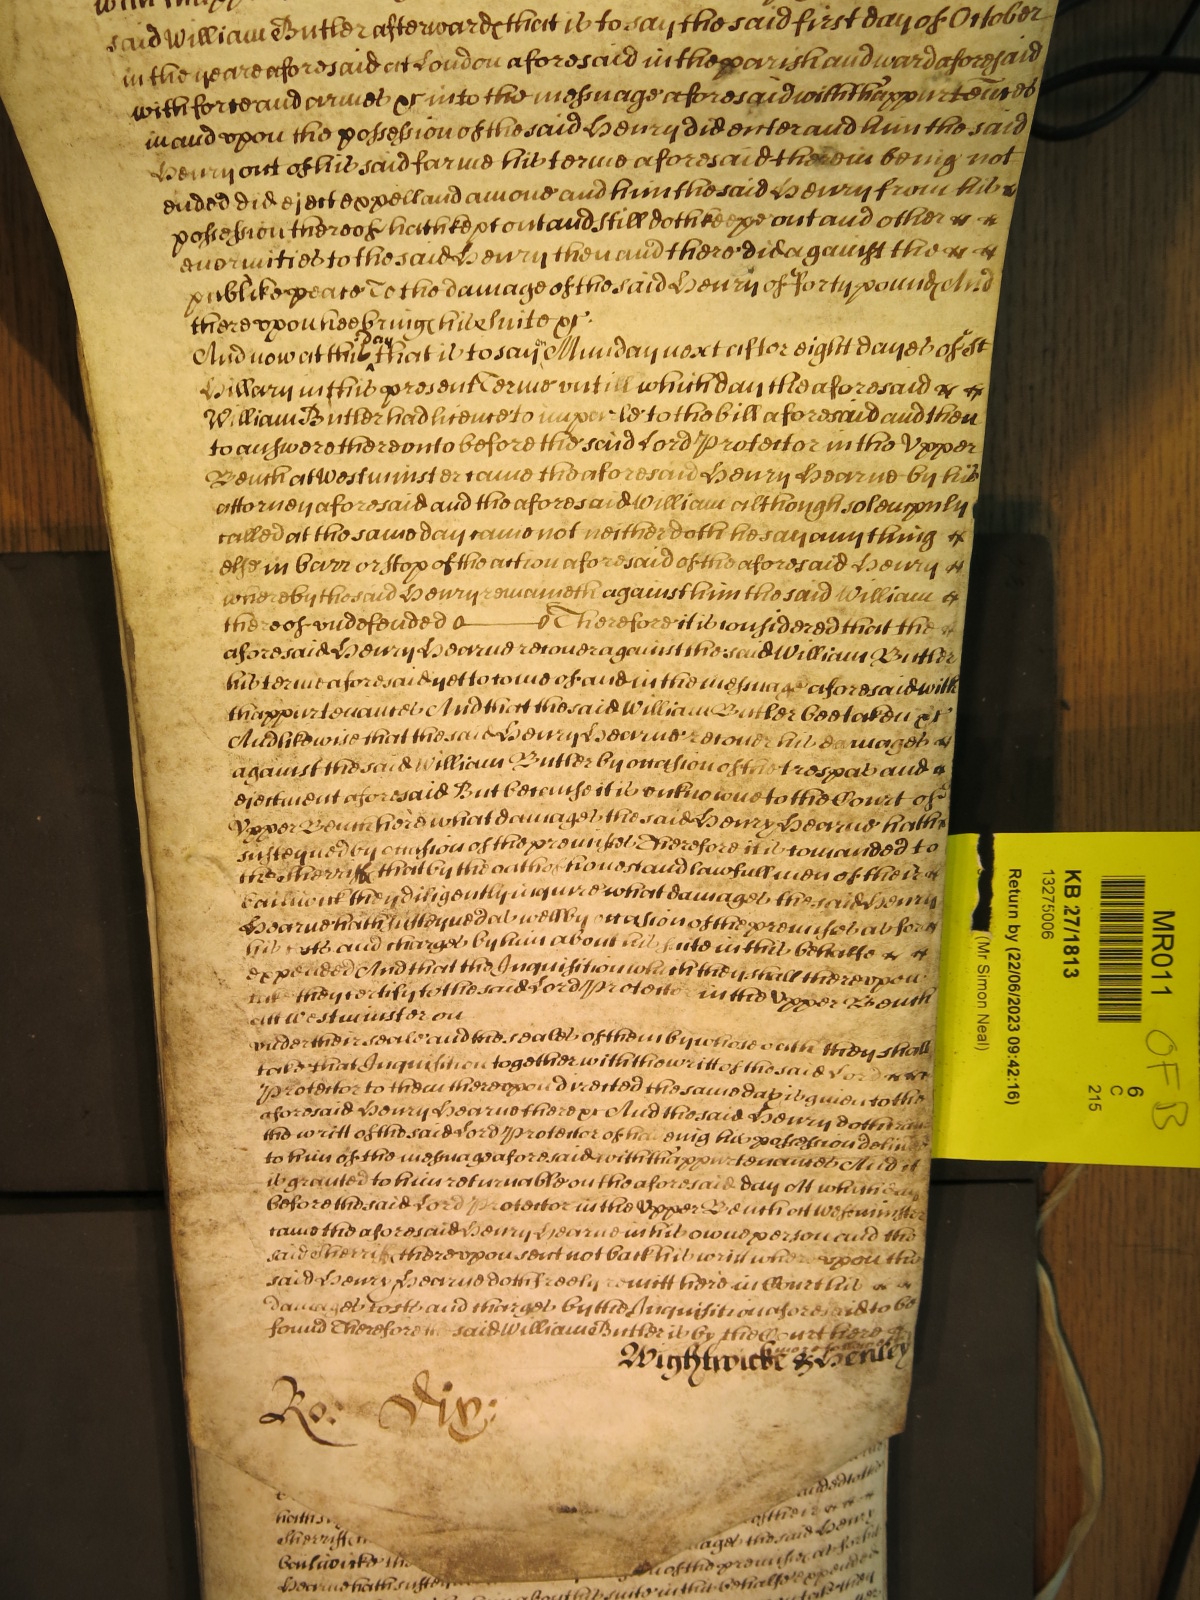 said William Butler afterward that is to say the said first day of October
in the yeare aforesaid at London aforesaid in the parish and ward aforesaid
with force and armes &c into the messuage aforesaid with thappurtences
in and vpon the possession of the said Henry did enter and him the said
Henry out of his said farme his terme aforesaid therein being not
ended did eject expell and amove and him the said Henry from his
possession thereof hath kept out and still doth keepe out and other
enormities to the said Henry then and there did against the
publike peace To the damage of the said Henry of Forty pound And
therevpon hee bring his suite &c.
And now at this day that is to say Munday next after eight dayes of St
Hillary in this present Terme vntill which day the aforesaid
William Butler had licence to imparle to the bill aforesaid and then
to answere therevnto before the said Lord Protector in the Vpper
Bench at Westminster came the aforesaid Henry Hearne by his
attorney aforesaid and the aforesaid William although solempnly
called at the same day came not neither doth he say any thing
else in barr or stop of the action aforesaid of the aforesaid Henry
whereby the said Henry remaineth against him the said William
thereof vndefended Therefore it is considered that the
aforesaid Henry Hearne recover against the said William Butler
his terme aforesaid yet to come of and in the messuage aforesaid with
thappurtenances And that the said William Butler bee taken &c
And likewise that the said Henry Hearne recover his damages
against the said William Butler by occasion of the trespas and
ejectment aforesaid But because it is unknowne to the Court of
Vpper Bench here what damages the said Henry Hearne hath
susteyned by occasion of the premisses Therefore it is comanded to
the Sherriff that by the oath of honest and lawfull men of their
bailiwick they diligently inquire what damages the said Henry
Hearne hath susteyned as well by occasion of the premisses as for
his costs and charges by him about his suite in this behalfe
expended And that the Inquisition which they shall therevpon
take they certify to the said Lord Protector in the Vpper Bench
att Westminster on
vnder their seale and the seales of them by whose oath they shall
take that Inquisition together with the writt of the said Lord
Protector to them therevpon directed the same day is given to the
aforesaid Henry Hearne there &c And the said Henry doth
the writt of the said Lord Protector of haveing his possession
to him of the messuage aforesaid with thappurtenances And it
is granted to him returnable on the aforesaid day Att which day
before the said Lord Protector in the Vpper Bench att Westminster
came the aforesaid Henry Hearne in his owne person and the
said Sherriff therevpon sent not back his writt wherevpon the
said Henry Hearne doth freely remitt here in Court his
damages costs and charges by the Inquisition aforesaid to be
found Therefore the said William Butler is by the Court here
Wightwicke & Henley
Ro: Dix:
hath
Sherriff
bailiwicke the
Hearne hath
of their
damages the said Henry
of the premisses as for
about his suite in this behalfe expended
MR011
OFB
6
C
215
KB 27/1813
13275006
Return by (22/06/2023 09:42:16)
(Mr Simon Neal)